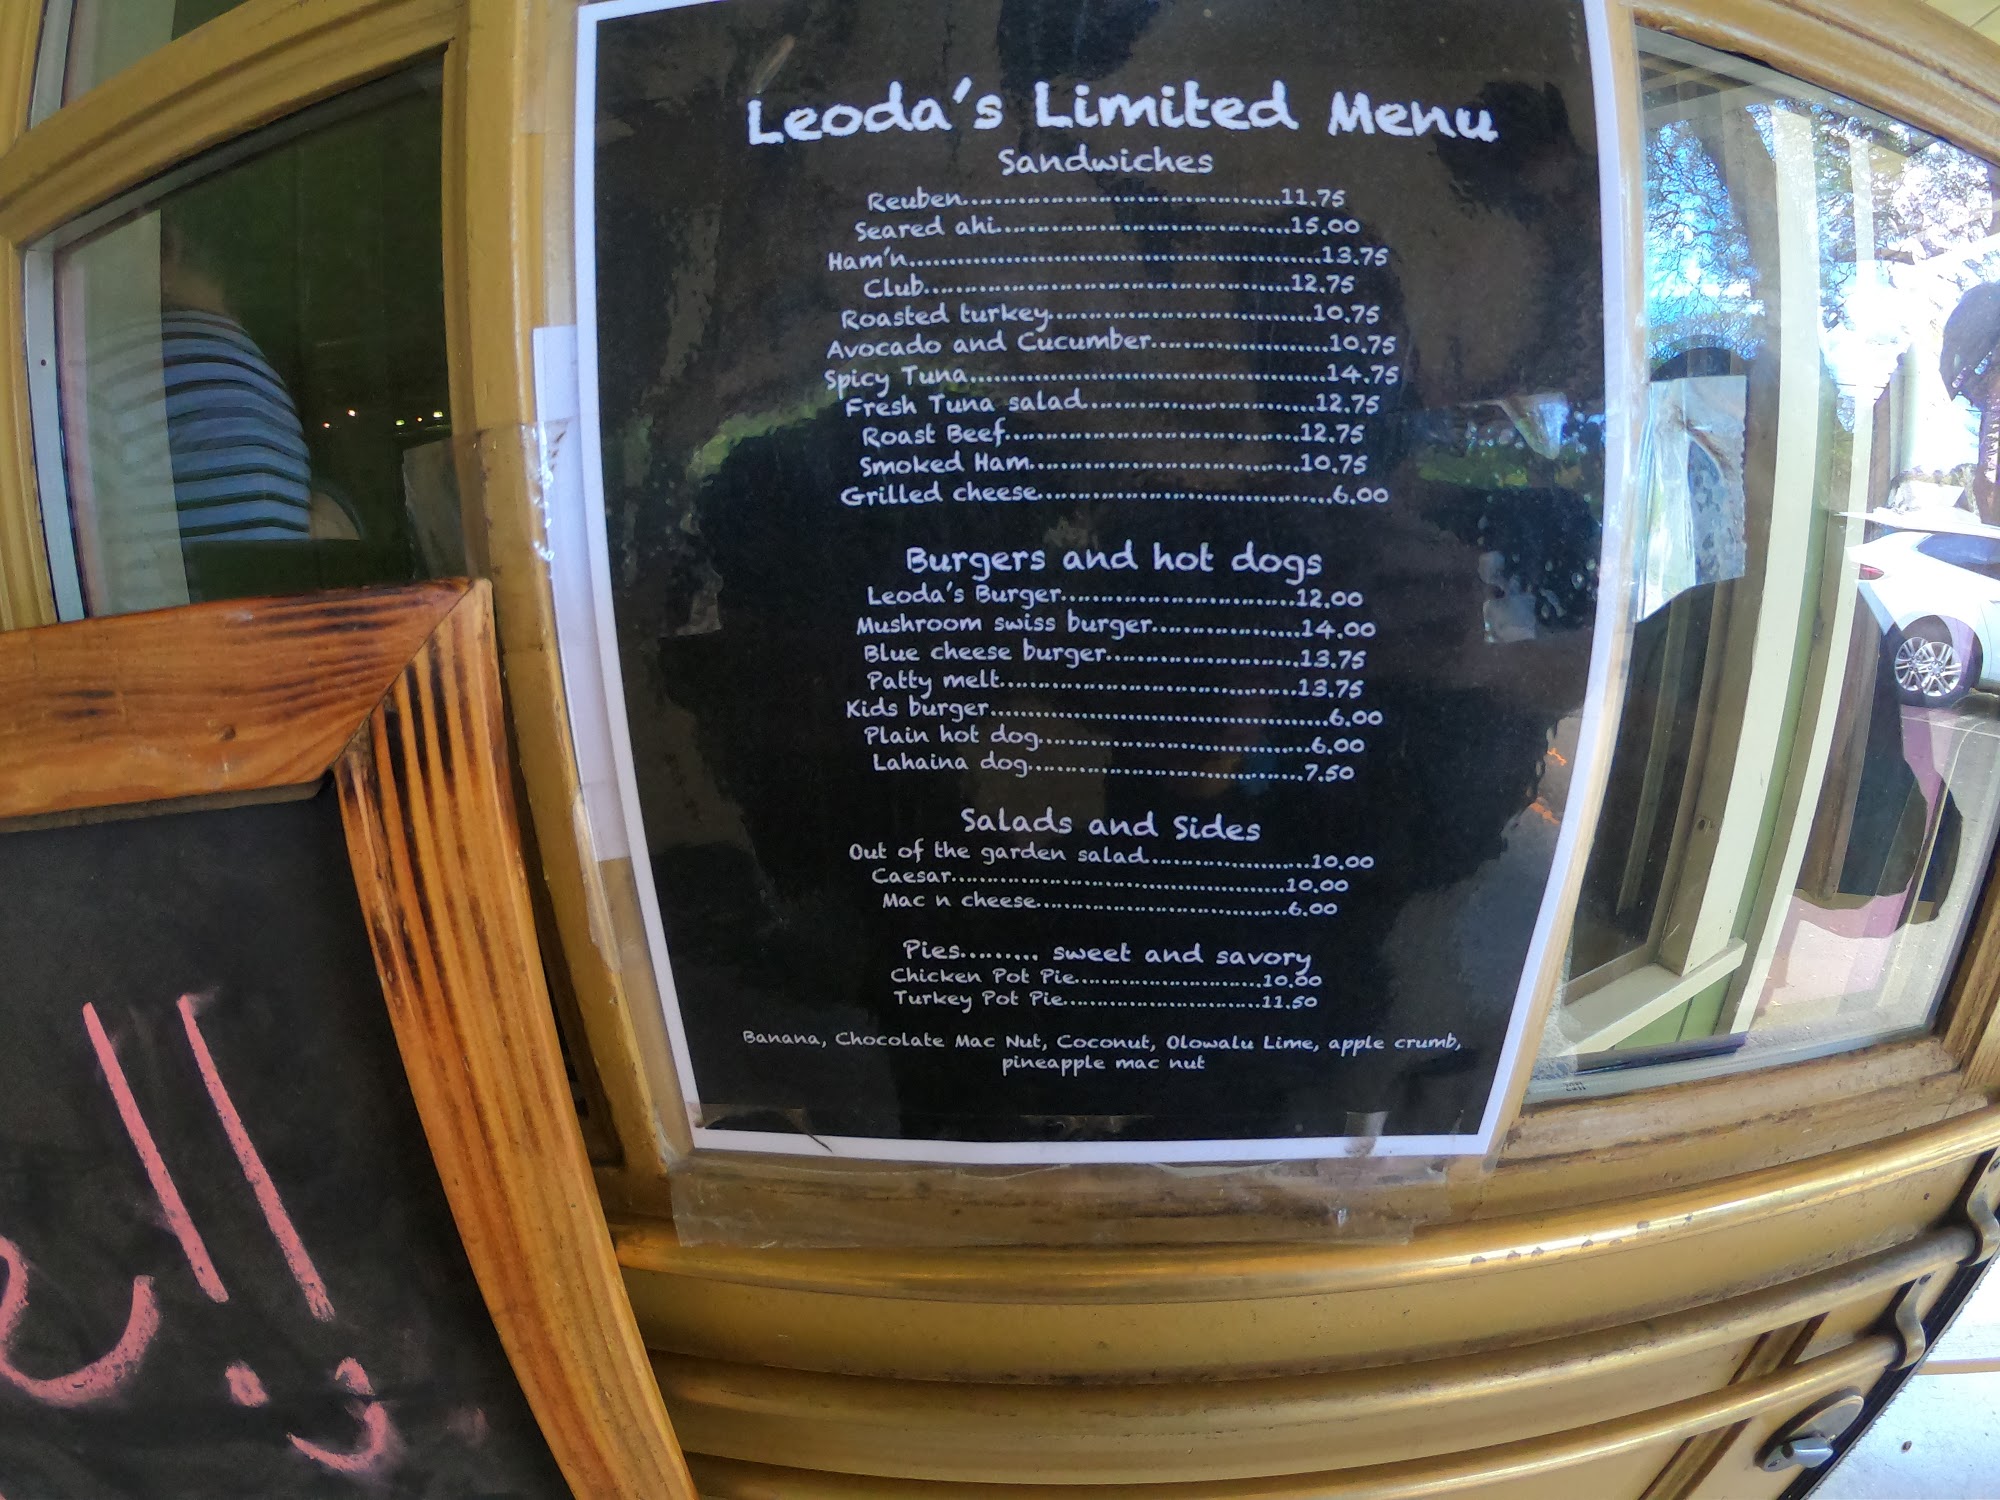 Leoda's Limited Menu
Sandwiches
Reuben.......................................11.75
Seared ahi...................................15.00
Ham'n..................................................13.75
Club.............................................12.75
Roasted turkey................................10.75
Avocado and Cucumber.....................10.75
Spicy Tuna...........................................14.75
Fresh Tuna salad............................12.75
Roast Beef....................................12.75
Smoked Ham.................................10.75
Grilled cheese...................................6.00
Burgers and hot dogs
Leoda's Burger............................12.00
Mushroom swiss burger..................14.00
Blue cheese burger.......................13.75
Patty melt....................................13.75
Kids burger.........................................6.00
Plain hot dog.................................6.00
Lahaina dog.................................7.50
Salads and Sides
Out of the garden salad....................10.00
Caesar.........................................10.00
Mac n cheese..............................6.00
Pies......... sweet and savory
Chicken Pot Pie.......................10.00
Turkey Pot Pie........................11.50
Banana, Chocolate Mac Nut, Coconut, Olowalu Lime, apple crumb,
pineapple mac nut
!!